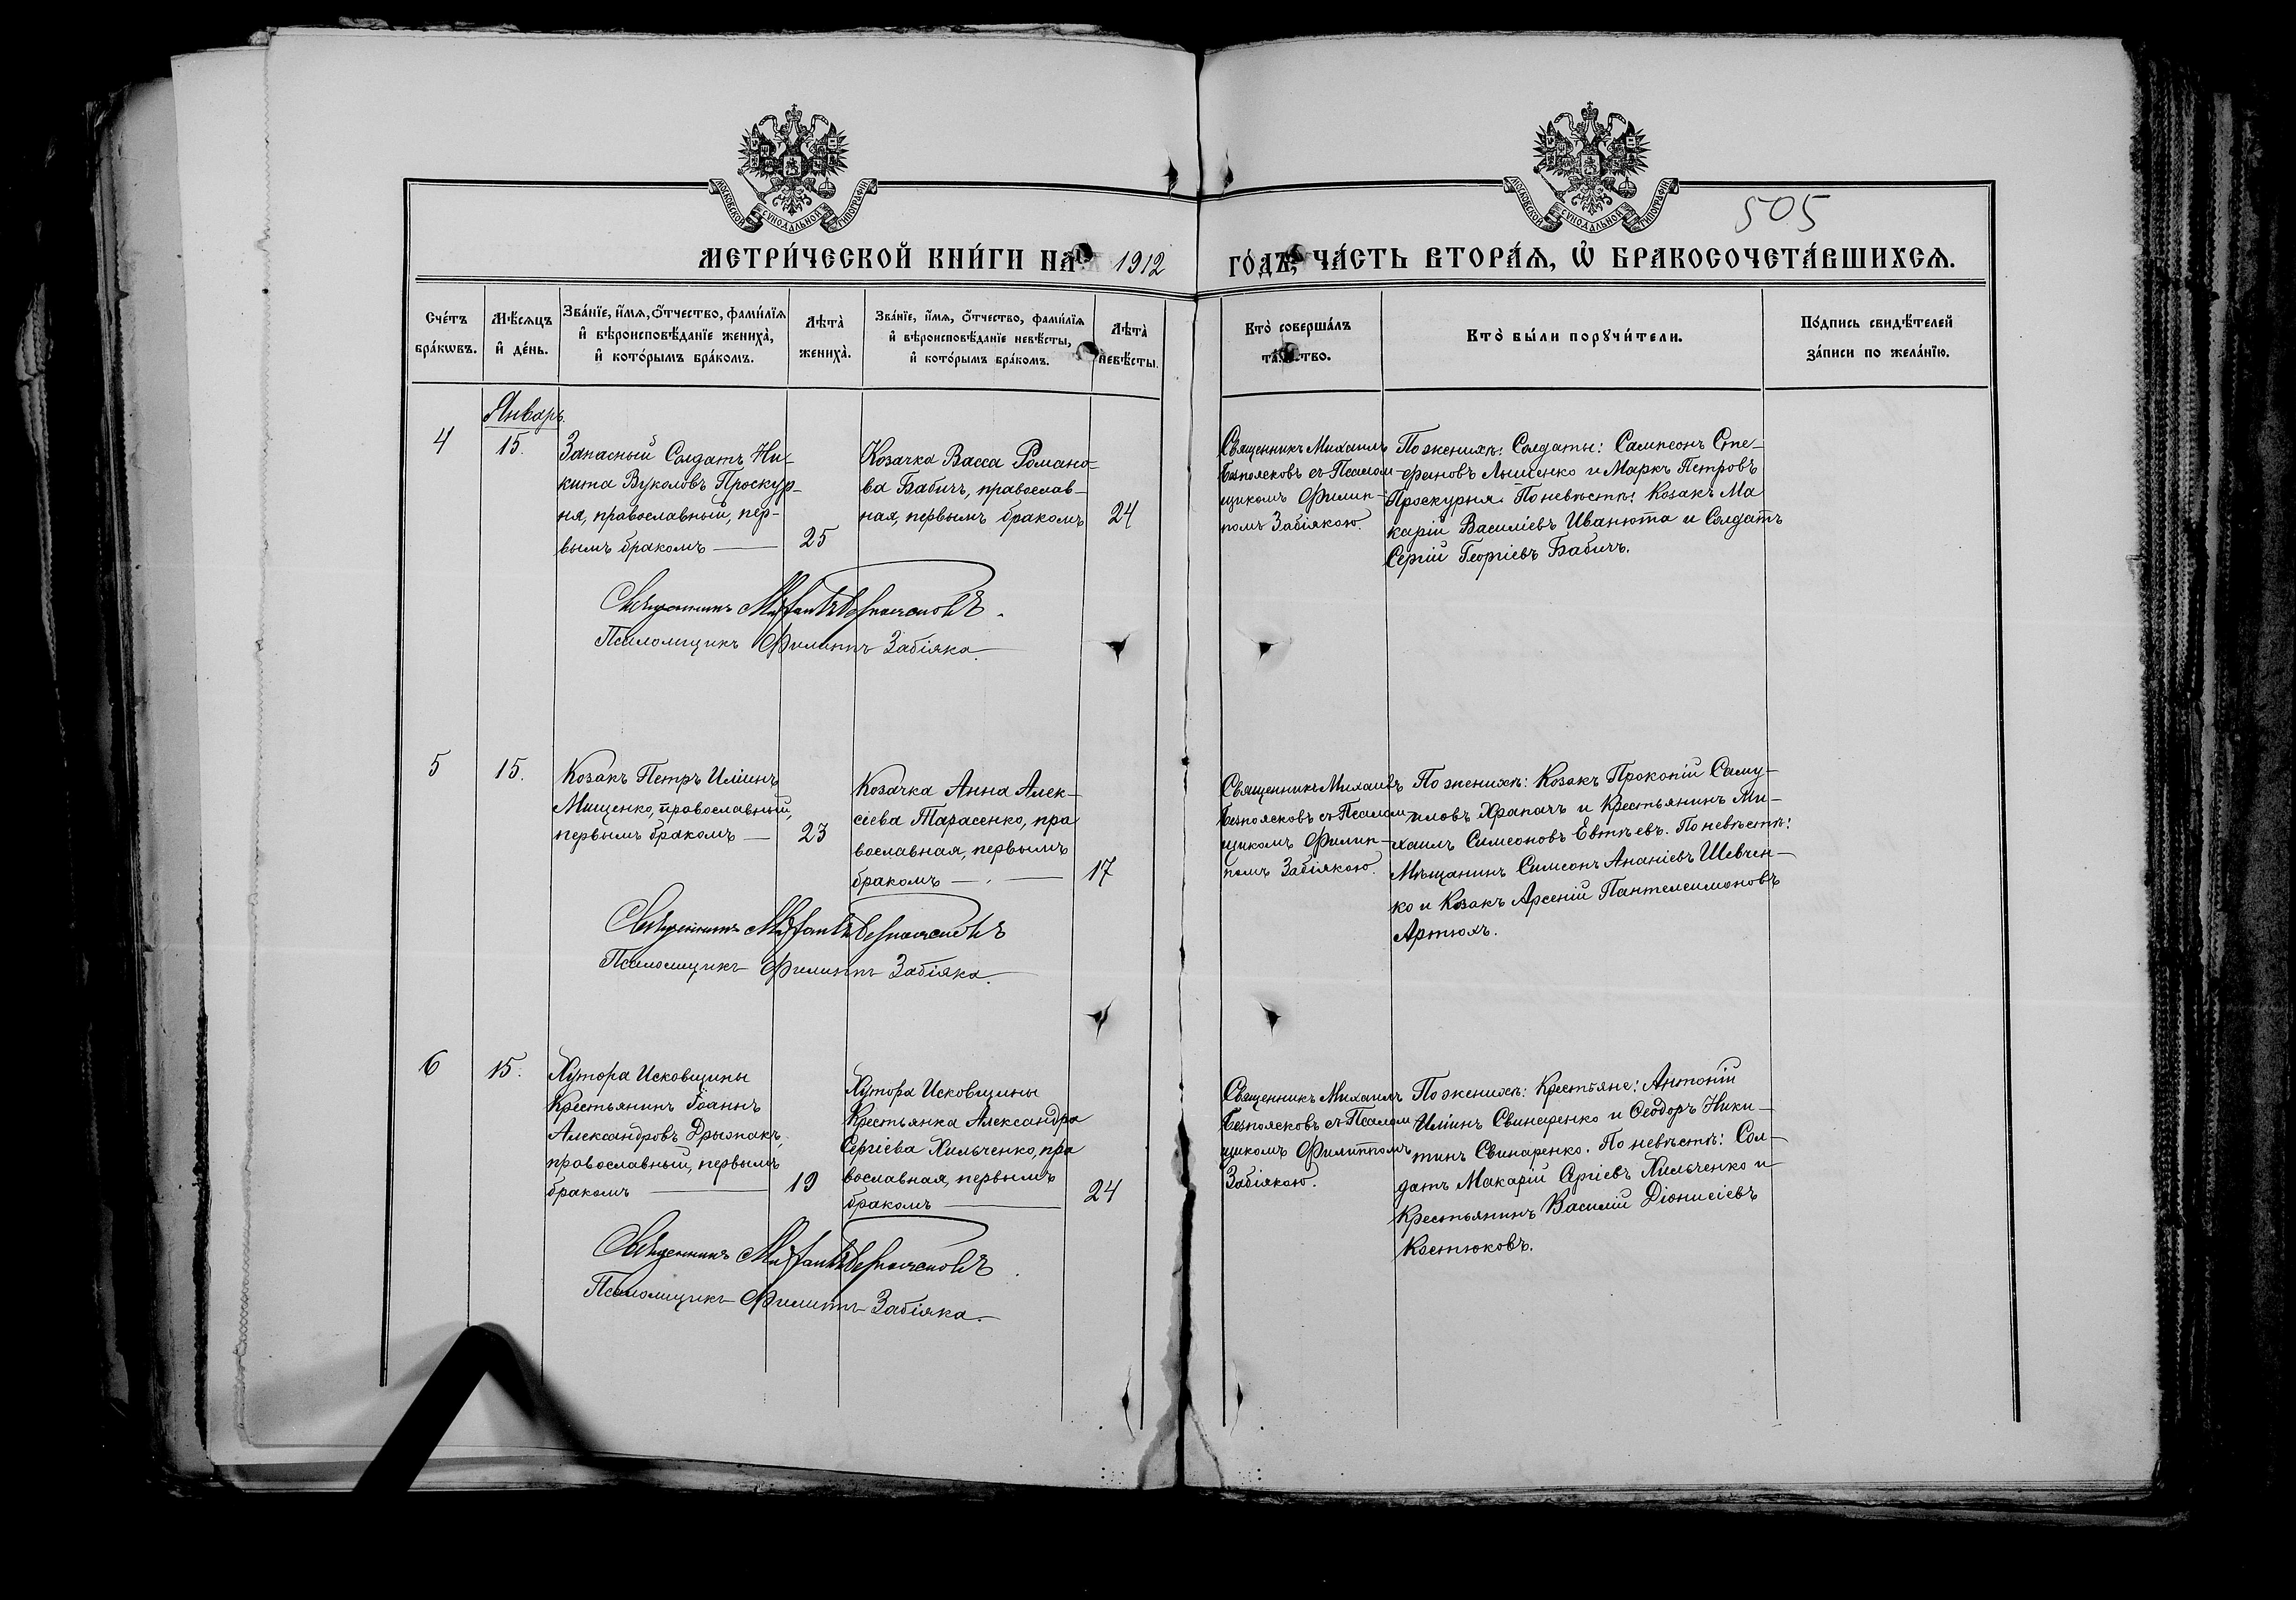 МОСКОВСКОЙ СѴНОДАЛЬНОЙ ТИПОГРАФІИ
МОСКОВСКОЙ СѴНОДАЛЬНОЙ ТИПОГРАФІИ
505
МЕТРИ́ЧЕСКОЙ КНИ́ГИ НА 1912 ГО́ДЪ, ЧА́СТЬ ВТОРА́Ѧ, Ѡ҆ БРАКОСОЧЕТА́ВШИХСѦ.
Сче́тъ
бра́кѡвъ.
Мѣ́сѧцъ
и҆ де́нь.
Зва́нїе, и҆́мѧ, ѻ҆́тчество, фами́лїѧ
и҆ вѣроисповѣ́данїе жениха̀,
и҆ кото́рымъ бра́комъ.
Лѣта̀
жениха̀.
Зва́нїе, и҆́мѧ, ѻ҆́тчество, фами́лїѧ
и҆ вѣроисповѣ́данїе невѣ́сты,
и҆ кото́рымъ бра́комъ.
Лѣта̀
невѣ́сты.
Кто̀ соверша́лъ
та́инство.
Кто̀ бы́ли порꙋчи́тели.
По́дпись свидѣ́телей
за́писи по жела́нїю.
Январь.
4
15.
Запасный Солдатъ Ни-
кита Вуколовъ Проскур-
ня, православный, пер-
вымъ бракомъ —
25
Козачка Васса Романо-
ва Бабичъ, православ-
ная, первымъ бракомъ
24
Священникъ Михаилъ
Безпоясковъ съ Псалом-
щикомъ Филип-
помъ Забіякою.
По женихѣ: Солдаты: Сампсонъ Сте-
фановъ Лышенко и Маркъ Петровъ
Проскурня. По невѣстѣ: Козакъ Ма
карій Василіевъ Иванюта и Солдатъ
Сергій Георгіевъ Бабичъ.
Священникъ Михаилъ Безпоясковъ.
Псаломщикъ Филиппъ Забіяка.
5
15.
Козакъ Петръ Иліинъ
Мищенко, православный,
первымъ бракомъ —
23
Козачка Анна Алек-
сіева Тарасенко, пра
вославная, первымъ
бракомъ —
17
Священникъ Михаилъ
Безпоясковъ съ Псалом
щикомъ Филип-
помъ Забіякою.
По женихѣ: Козакъ Прокопій Саму-
иловъ Храпачъ и Крестьянинъ Ми-
хаилъ Симеоновъ Евтѣевъ. По невѣстѣ:
Мѣщанинъ Симеонъ Ананіевъ Шевчен-
ко и Козакъ Арсеній Пантелеимоновъ
Артюхъ.
Священникъ Михаилъ Безпоясковъ
Псаломщикъ Филиппъ Забіяка.
6
15.
Хутора Исковщины
Крестьянинъ Іоаннъ
Александровъ Дрыжакъ,
православный, первымъ
бракомъ —
19
Хутора Исковщины
Крестьянка Александра
Сергіева Хильченко, пра
вославная, первымъ
бракомъ —
24
Священникъ Михаилъ
Безпоясковъ съ Псалом
щикомъ Филиппомъ
Забіякою.
По женихѣ: Крестьяне: Антоній
Иліинъ Свинаренко и Феодоръ Ники-
тинъ Свинаренко. По невѣстѣ: Сол-
датъ Макарій Сргіевъ Хильченко и
Крестьянинъ Василій Діонисіевъ
Костюковъ.
Священникъ Михаилъ Безпоясковъ.
Псаломщикъ Филиппъ Забіяка.